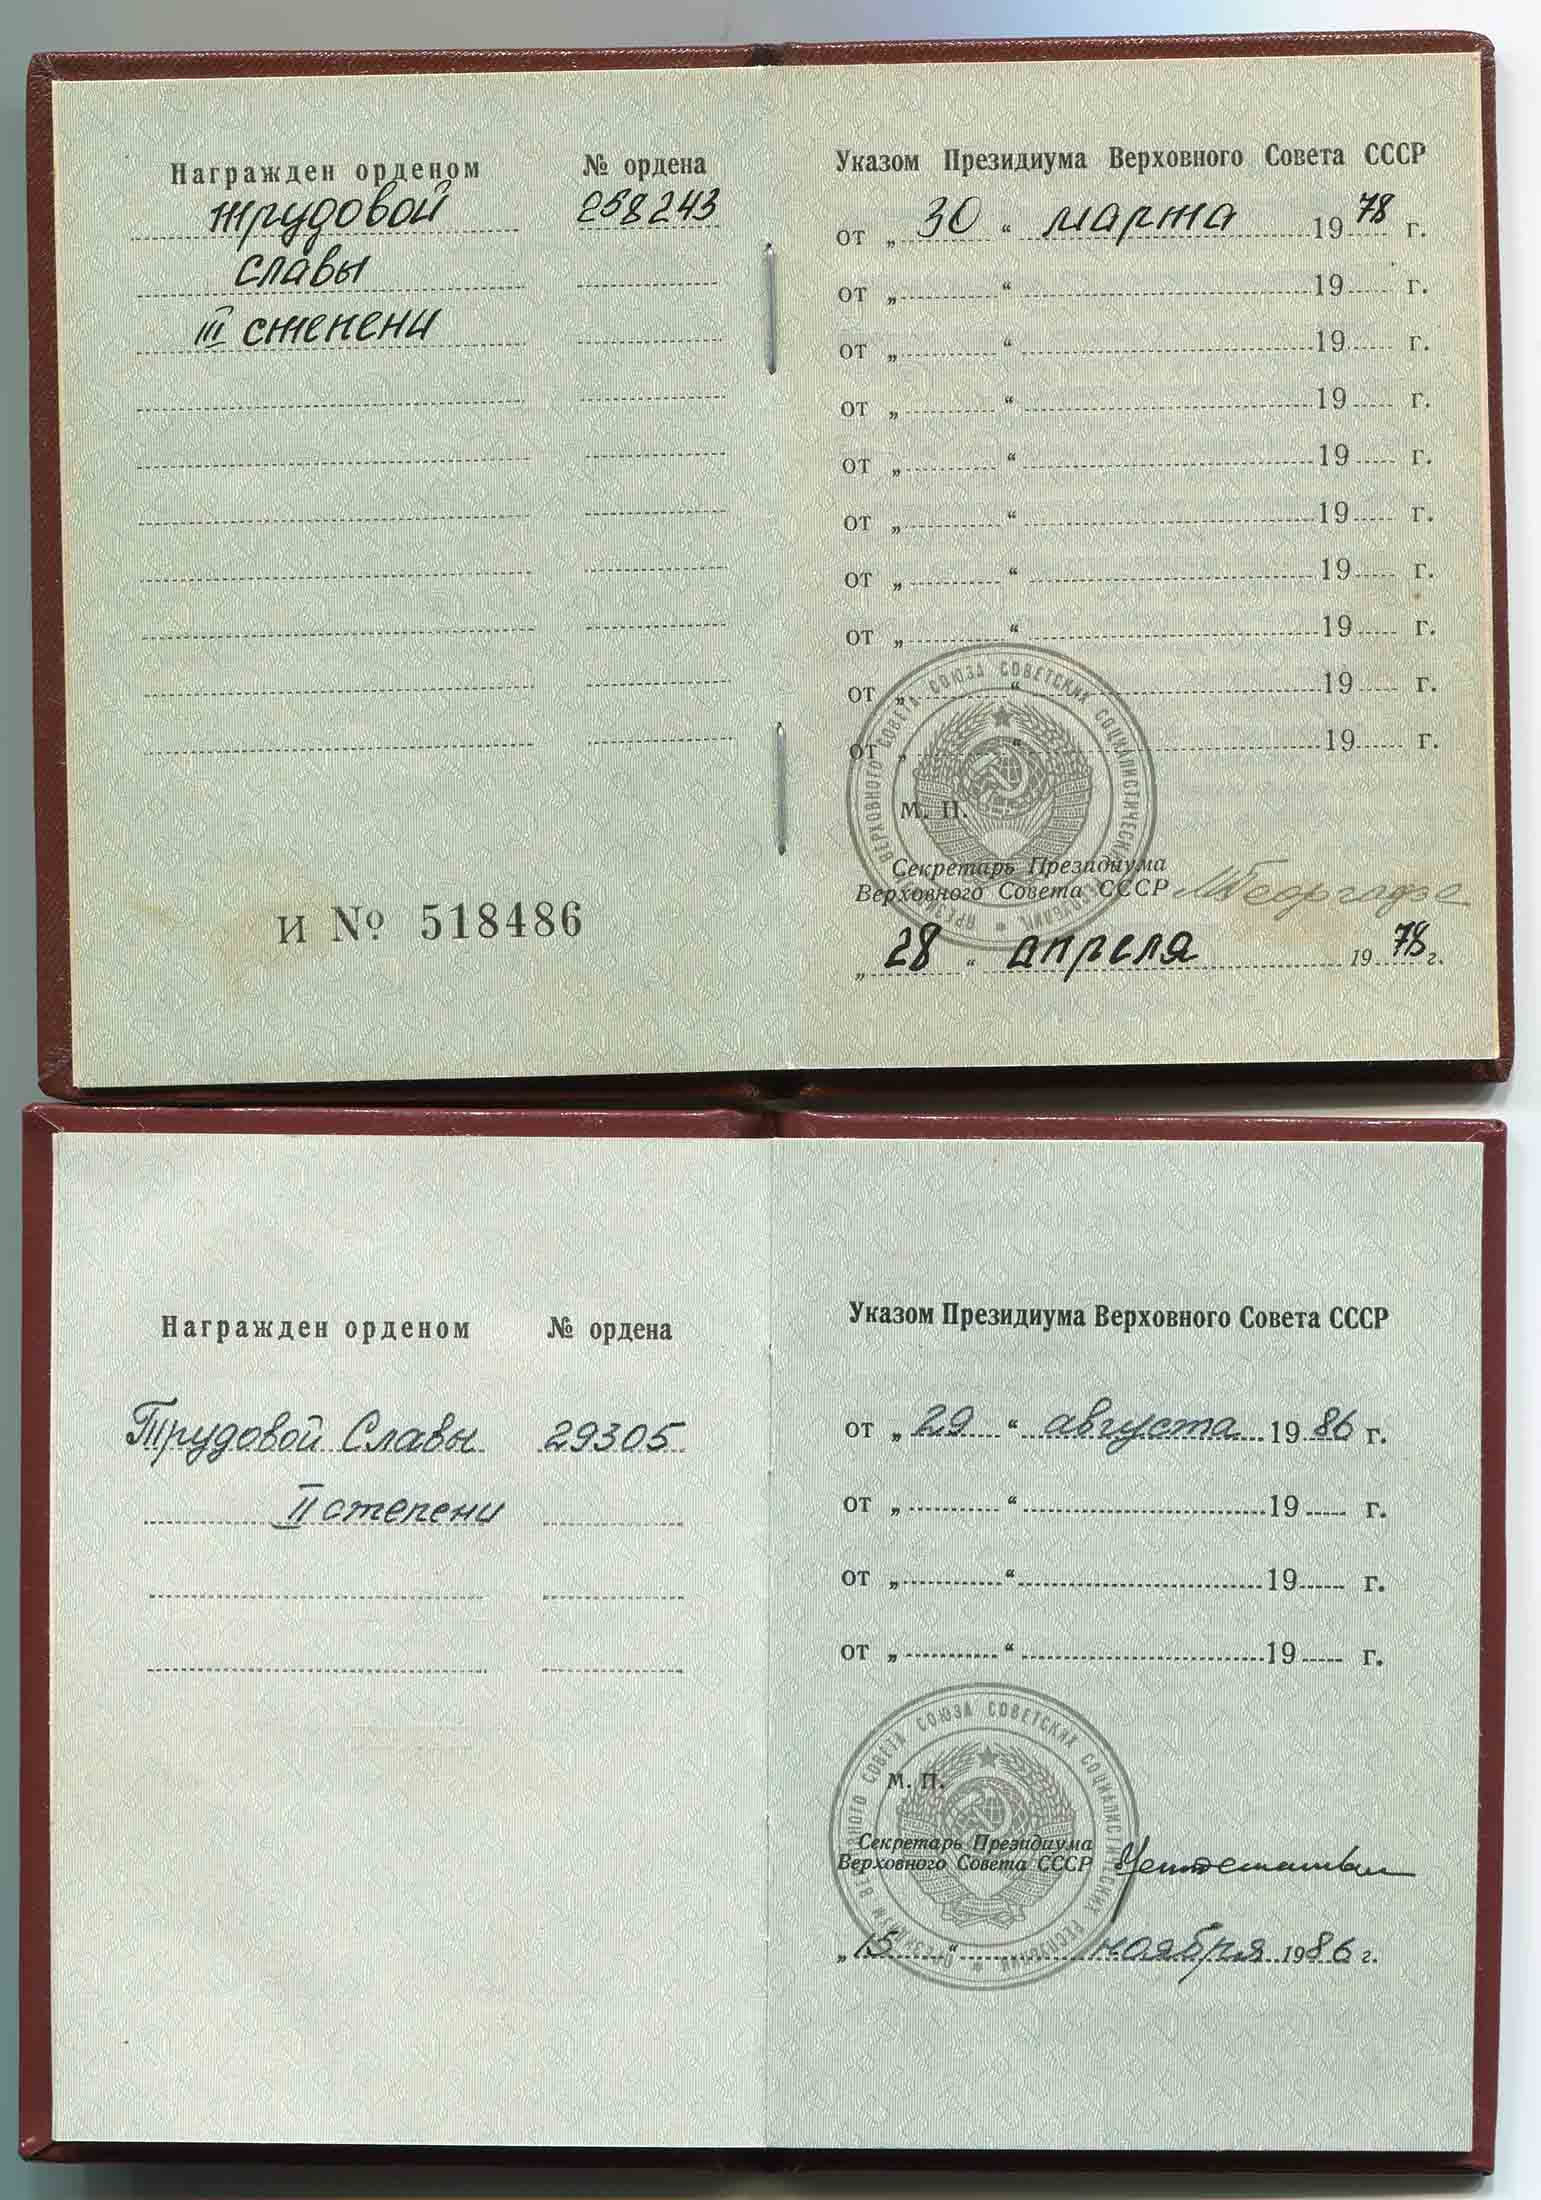 Награжден орденом № ордена
трудовой 258243
славы
III степени
И № 518486
Указом Президиума Верховного Совета СССР
от „ 30 “ марта 1978 г.
от „ “ 19 г.
от „ “ 19 г.
от „ “ 19 г.
от „ “ 19 г.
от „ “ 19 г.
от „ “ 19 г.
от „ “ 19 г.
от „ “ 19 г.
от „ “ 19 г.
ПРЕЗИДИУМ ВЕРХОВНОГО СОВЕТА СОЮЗА СОВЕТСКИХ СОЦИАЛИСТИЧЕСКИХ РЕСПУБЛИК
М. П.
Секретарь Президиума
Верховного Совета СССР МГеоргадзе
„ 28 “ апреля 1978 г.
Награжден орденом № ордена
Трудовой Славы 29305
II степени
Указом Президиума Верховного Совета СССР
от „ 29 “ августа 1986 г.
от „ “ 19 г.
от „ “ 19 г.
от „ “ 19 г.
ПРЕЗИДИУМ ВЕРХОВНОГО СОВЕТА СОЮЗА СОВЕТСКИХ СОЦИАЛИСТИЧЕСКИХ РЕСПУБЛИК
М. П.
Секретарь Президиума
Верховного Совета СССР
„ 15 “ ноября 1986 г.